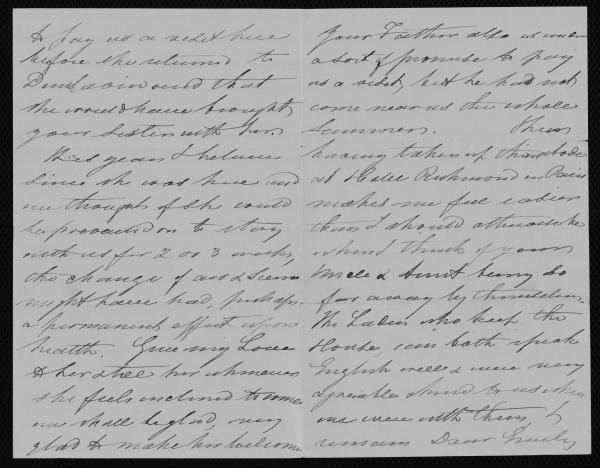 to pay us a visit here
before she returned to
and that
she would have brought
your Sister with her.
It is years I believe
since she was here and
we thought if she could
be prevailed on to stay
with us for 2 or 3 weeks,
the change of air & scene
might have had, perhaps
a permanent effect upon
health. Give my Love
to her & tell her whenever
she feels inclined to come
we shall be glad, very
glad to make her welcome
Your Father also is under
a sort of promise to pay
us a visit, but he has not
come near us the whole
Summer. Their
having taken up their abode
at Hotel Richmond in Paris
makes me feel easier
than I should otherwise be
when I think of your
Uncle & Aunt being so
far away by themselves.
The Ladies who keep the
House, can both speak
English well & were very
agreeable & kind to us when
we were with them, I
remain Dear Emily